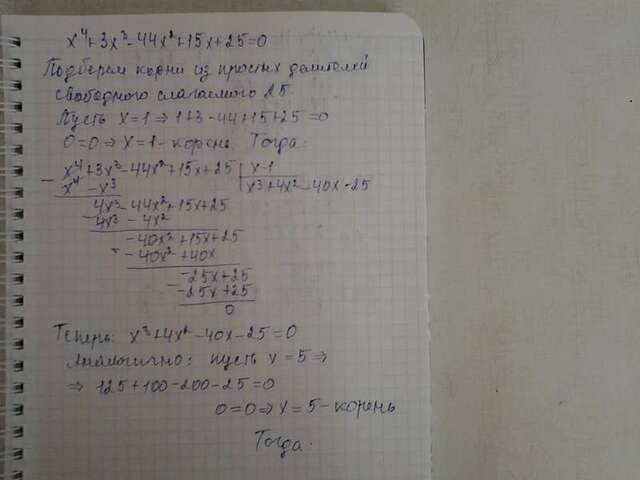 x⁴+3x³-44x²+15x+25=0
Подберем корни из простых делителей
свободного слагаемого 25.
Пусть x=1⇒1+3-44+15+25=0
0=0⇒x=1-корень. Тогда:
x⁴+3x³-44x²+15x+25 | x-1
- x⁴-x³ | x³+4x²-40x-25
4x³-44x²+15x+25
- 4x³-4x²
-40x²+15x+25
- -40x²+40x
-25x+25
- -25x+25
0
Теперь: x³+4x²-40x-25=0
Аналогично: пусть x=5⇒
⇒125+100-200-25=0
0=0⇒x=5-корень
Тогда: